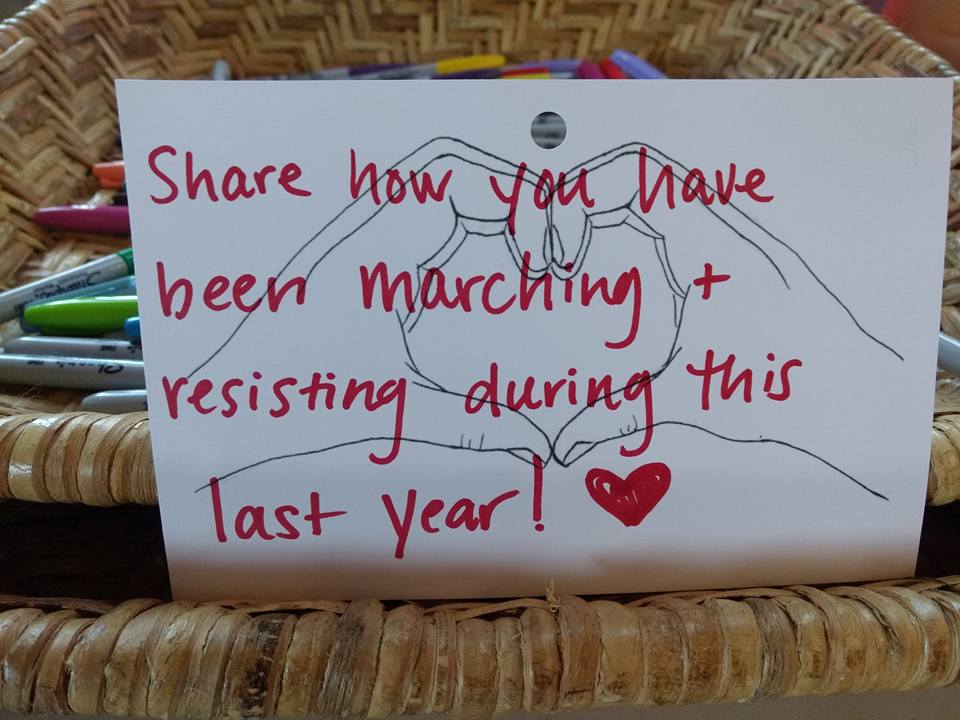 Share how you have
been marching +
resisting during this
last year!